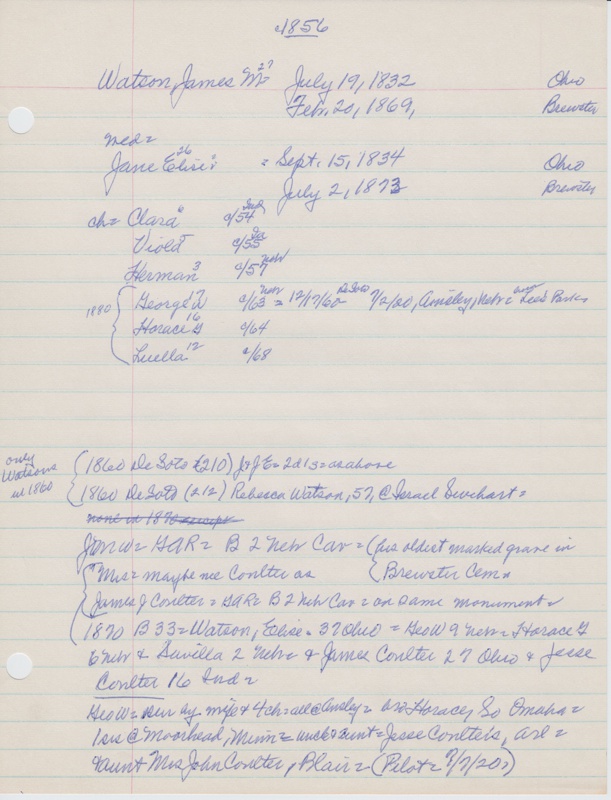 1856
Watson, James M 27 July 19, 1832 Ohio
Feb. 20, 1869, Brewster
med =
Jane Elise 26 = Sept. 15, 1834 Ohio
July 2, 1873 Brewster
ch = Clara 6 c/54 Ind
Viola 5 c/55 Ia
Herman 3 c/57 Nebr
1880 { George W 17 c/63 Nebr = 12/17/60 DeSoto 7/2/20, Ansley, Nebr = Lees Parks
Horace G 16 c/64
Luella 12 c/68
only Watsons in 1860
1860 De Soto (210) J & J E = 2d 1s = as above
1860 De Soto (212) Rebecca Watson, 52, @ Israel Swihart =
none in 1870 except
Jim W = GAR = B 2 Nebr Cav = (his oldest marked grave in
Brewster Cem =
"Mrs = maybe nee Coulter as
James J Coulter = GAR = B 2 Nebr Cav = on same monument =
1870 B 33 = Watson, Elise = 37 Ohio = Geo W 9 Nebr = Horace G
6 Nebr & Luvilla 2 Nebr = & James Coulter 27 Ohio & Jesse
Coulter 16 Ind =
Geo W = surv by wife & 4 ch = all @ Ansley = bro Horace, So Omaha =
1 sis @ Moorhead, Minn = uncle & aunt = Jesse Coulters, Arl =
& aunt Mrs John Coulter, Blair = (Pilot = 7/7/20)